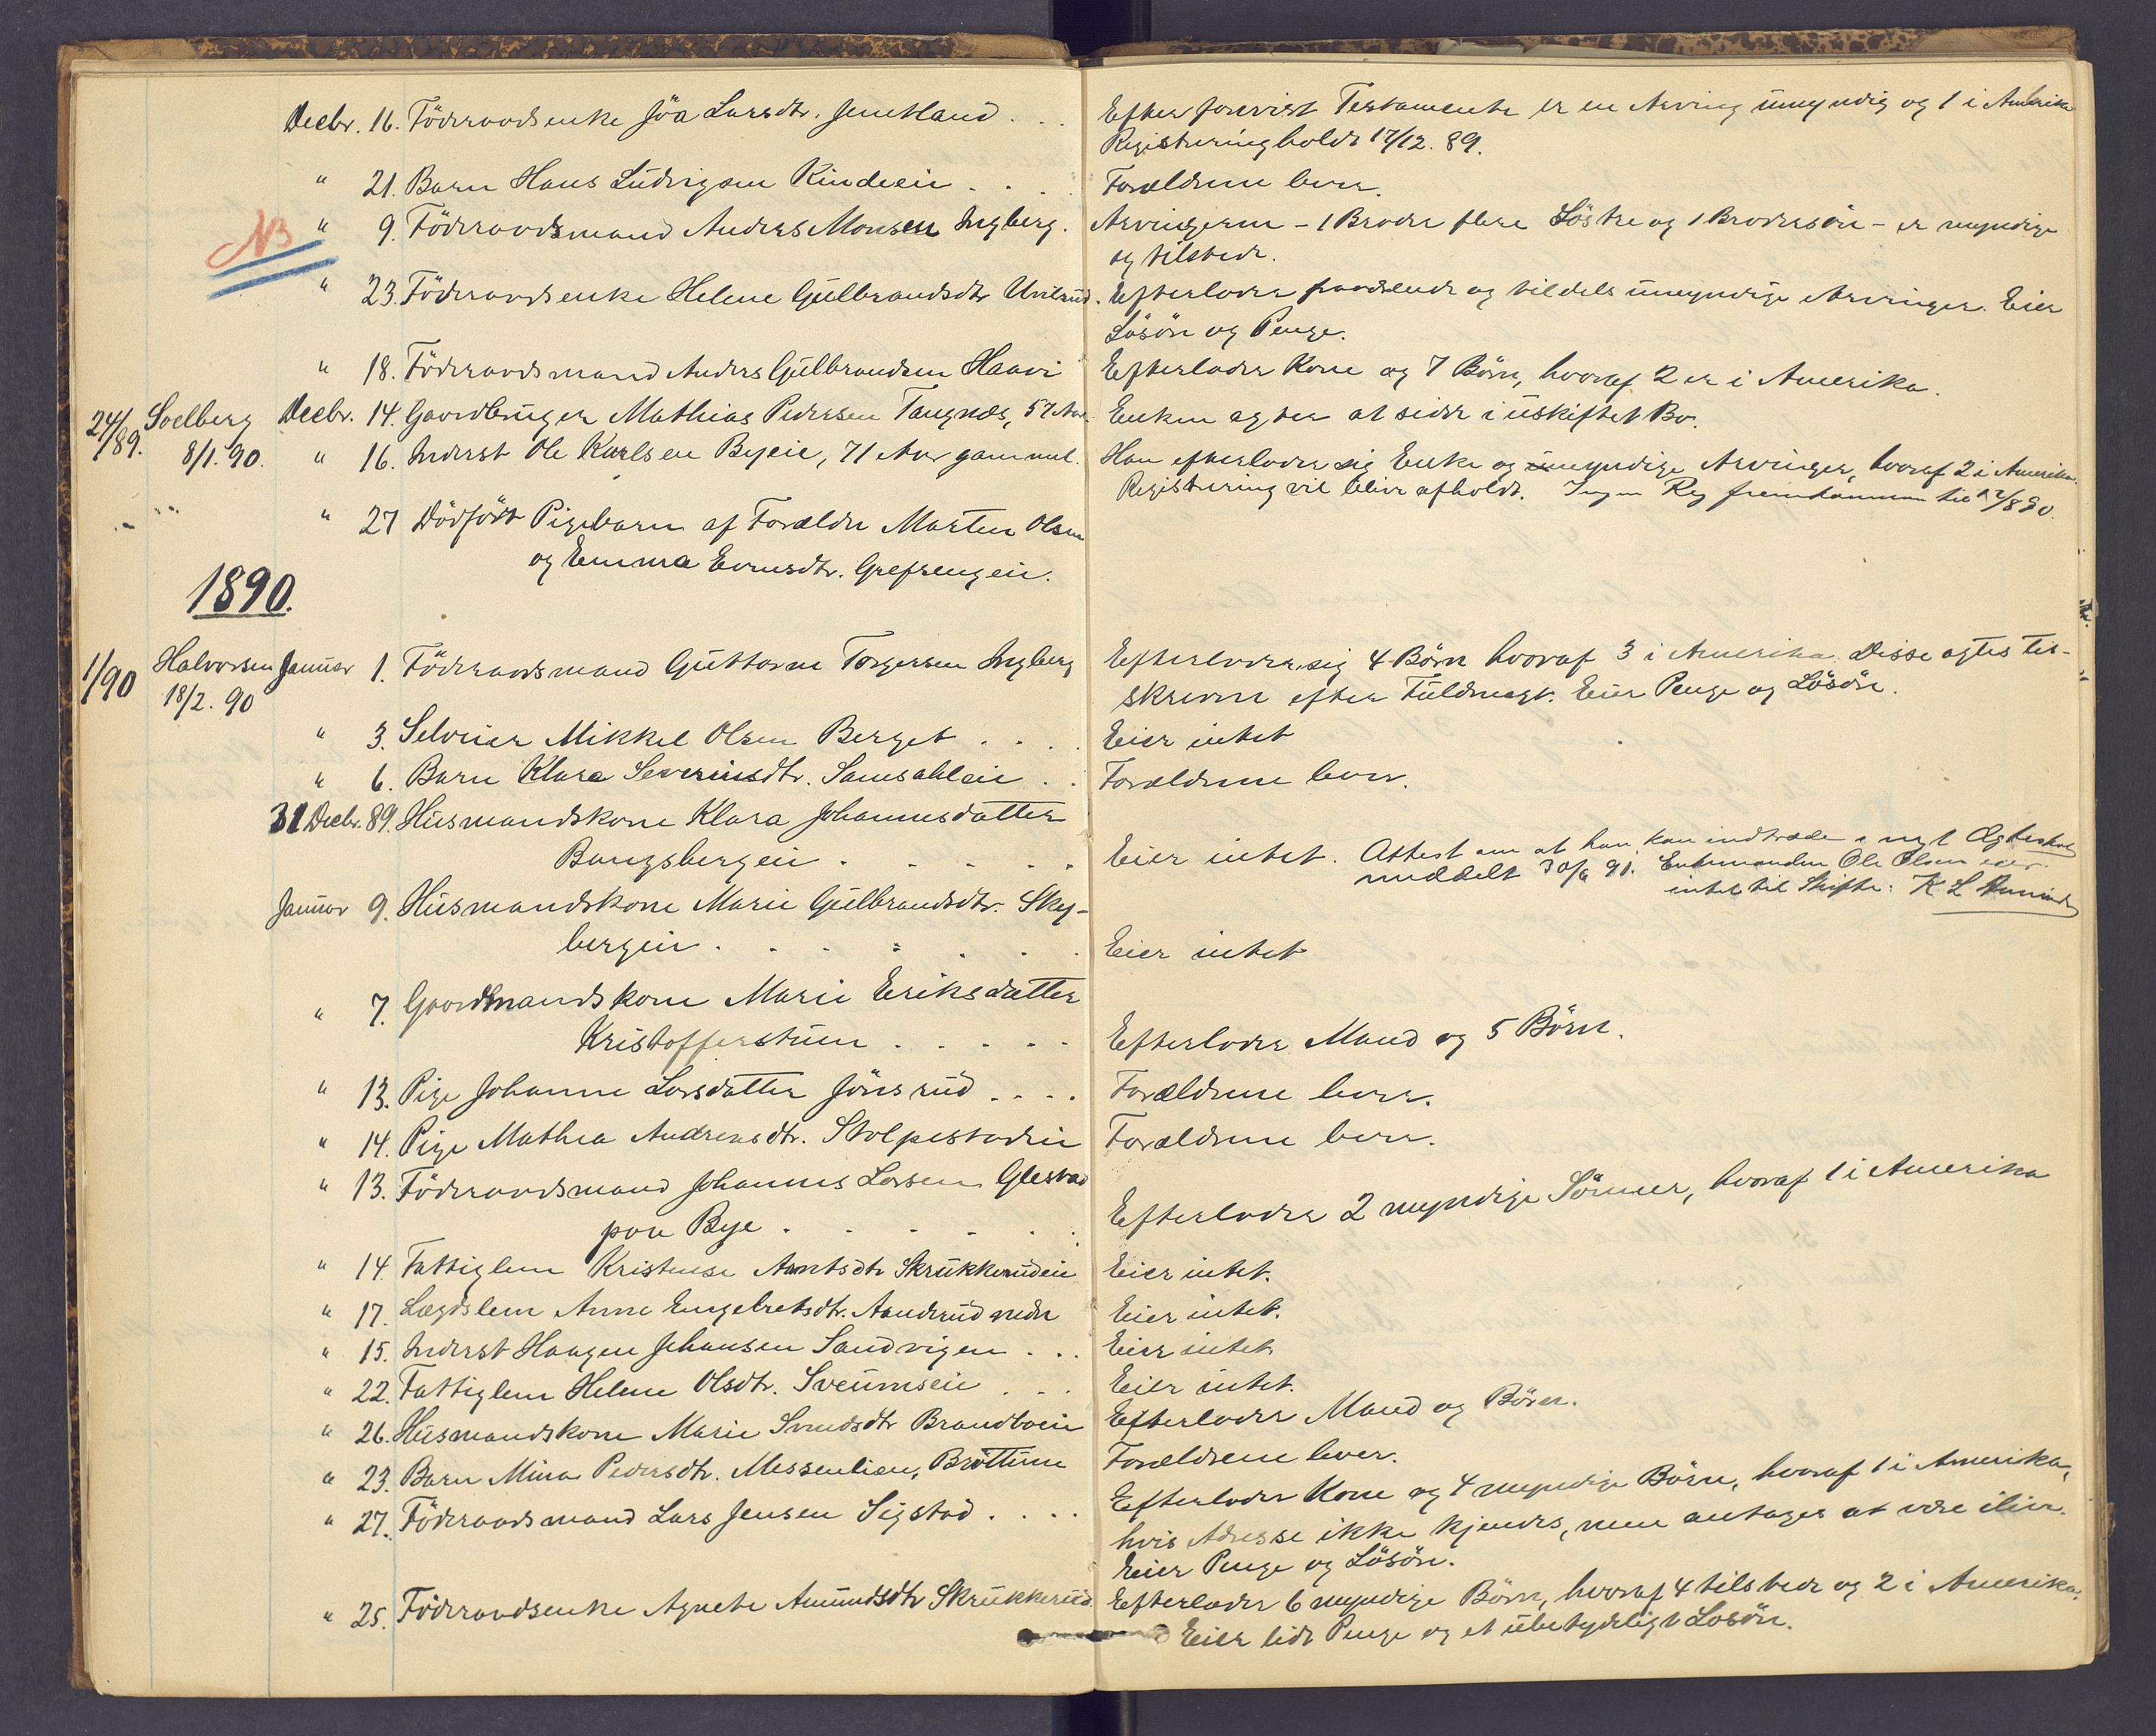 Decbr. 16. Föderaadsenke Jöa Larsdtr. Jemtland . . .
Efter forevist Testamente er en Arving umyndig og 1 i Amerika
Registrering holdt 17/12. 89.
" 21. Barn Hans Ludvigsen Kindeeie . . . .
Forældrene lever.
NB " 9. Föderaadsmand Anders Monsen Ingberg.
Arvingerne - 1 Broder flere Söstre og 1 Brodersön - er myndige
og tilstede.
" 23. Föderaadsenke Helene Gulbrandsdtr
Efterlader fraværende og tildels umyndige Arvinger. Eier
Lösöre og Penge.
" 18. Föderaadsmand Anders Gulbrandsen Haave
Efterlader Kone og 7 Börn, hvoraf 2 er i Amerika.
24/89. Soelberg Decbr. 14. Gaardbruger Mathias Pedersen Tangnæs, 57 Aar.
Enken agter at sidde i uskiftet Bo.
8/1. 90. " 16. Inderst Ole Karlsen Byeie, 71 Aar gammel.
Han efterlader sig Enke og umyndige Arvinger, hvoraf 2 i Amerika.
Registrering vil blive afholdt. Ingen Reg fremkommen til 12/8 90.
" 27 Dödfödt Pigebarn af Forældre Marten Olsen
og Emma Evensdtr. Grefsengeie.
1890.
1/90 Halvorsen Januar 1. Föderaadsmand Guttorm Torgersen Ingberg
Efterlader sig 4 Börn hvoraf 3 i Amerika. Disse agtes til-
18/2. 90
skreven efter Fuldmagt. Eier Penge og Lösöre.
" 3. Selveier Mikkel Olsen Berget . . . .
Eier intet
" 6. Barn Klara Severinsdtr. Samsahleie . .
Forældrene lever.
31 Decbr. 89. Husmandskone Klara Johannesdatter
Bangsbergeie . . . . .
Eier intet. Attest om at han kan indtræde i nyt Ægteskab
meddelt 30/6 91. Enkemanden Ole Olsen eier
intet til Skifte: K L
Januar 9. Husmandskone Marie Gulbrandsdtr. Sky-
bergeie . . . . . .
Eier intet
" 7. Gaardmandskone Marie Eriksdatter
Kristofferstuen . . . . .
Efterlader Mand og 5 Börn.
" 13. Pige Johanne Larsdatter Jönsrud . . . .
Forældrene lever.
" 14. Pige Mathea Andreasdtr. Stolpestadeie
Forældrene lever.
" 13. Föderaadsmand Johannes Larsen Glestad
paa Bye . . . . .
Efterlader 2 myndige Sönner, hvoraf 1 i Amerika
" 14. Fattiglem Kristense Arntsdtr Skrukkerudeie
Eier intet.
" 17. Lægdslem Anne Engebretsdtr. Aanderud nedre
Eier intet.
" 15. Inderst Haagen Johansen Sandvigen . . .
Eier intet
" 22. Fattiglem Helene Olsdtr. Sveumseie . . .
Eier intet.
" 26. Husmandskone Marie Svendsdtr Brandvoldeie
Efterlader Mand og Börn.
" 23. Barn Mina Pedersdtr. Messenlien, Bröttum
Forældrene lever.
" 27. Föderaadsmand Lars Jensen Sigstad . . . .
Efterlader Kone og 4 myndige Börn, hvoraf 1 i Amerika,
hvis Adresse ikke kjendes, men antages at være ilive.
Eier Penge og Lösöre.
" 25. Föderaadsenke Agnete Amundsdtr Skrukkerud
Efterlader 6 myndige Börn, hvoraf 4 tilstede og 2 i Amerika.
Eier lidt Penge og et ubetydeligt Lösöre.